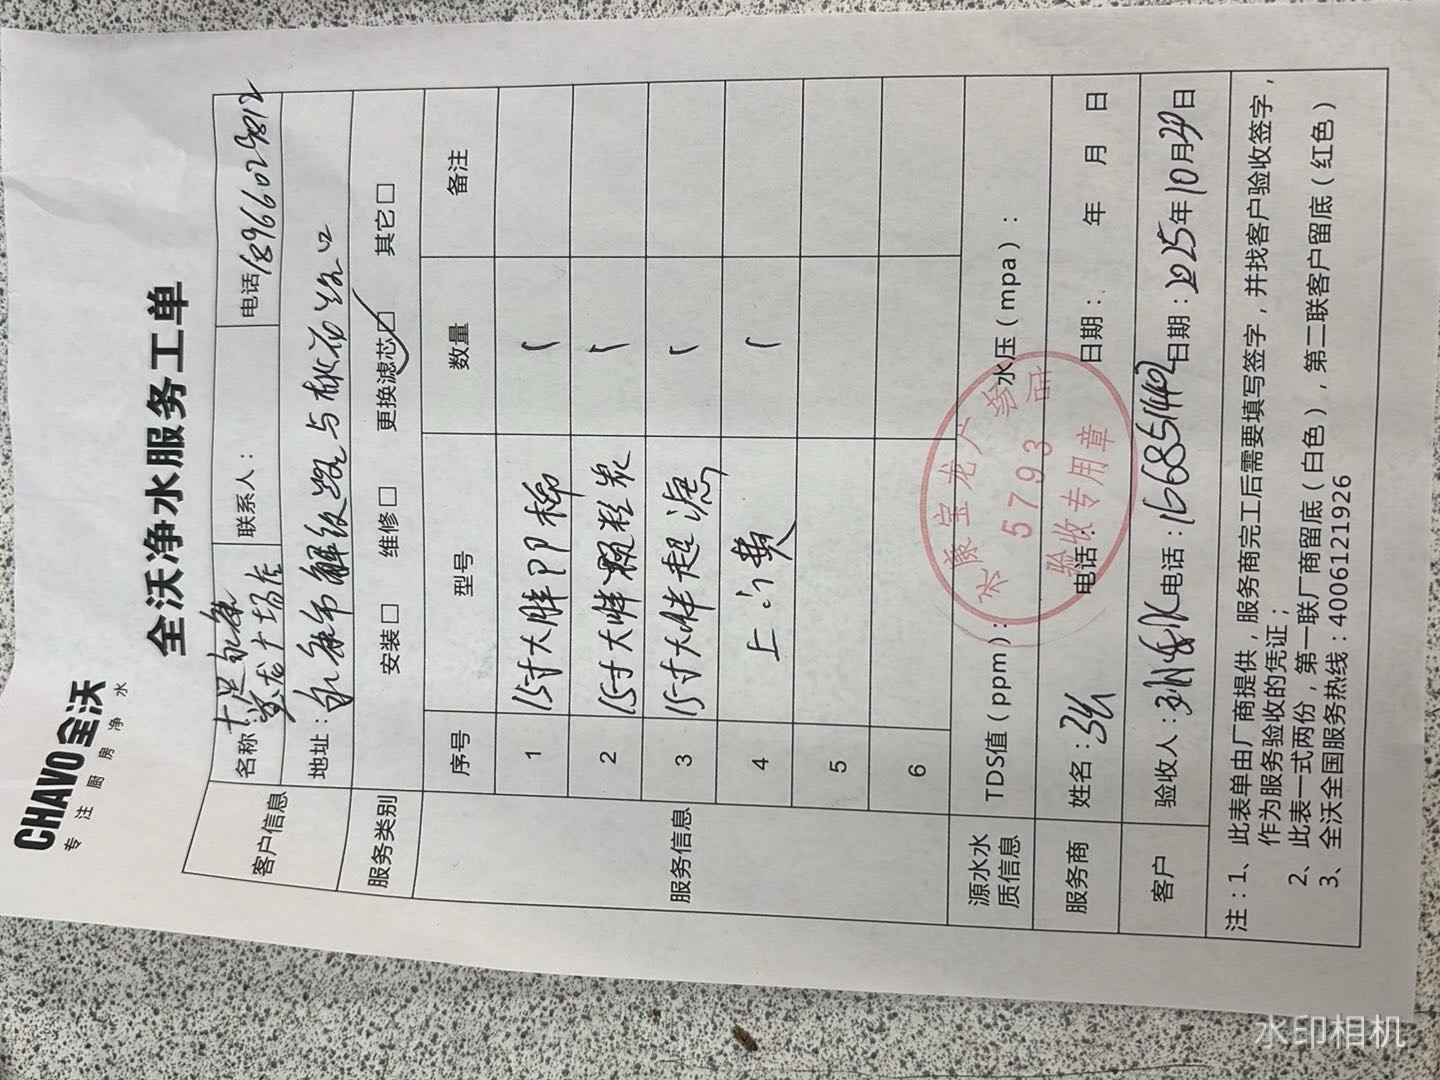 CHAVO 全沃
专注厨房净水
全沃净水服务工单
客户信息 名称： 大足永康宝龙广场店 联系人： 电话 18966029812
地址： 永康市解放路与桃花路口
服务类别 安装□ 维修□ 更换滤芯☑ 其它□
服务信息 序号 型号 数量 备注
1 15寸大胖PP棉 1
2 15寸大胖颗粒炭 1
3 15寸大胖超滤 1
4 上门费 1
5
6
源水水质信息 TDS值（ppm）： 水压（mpa）：
服务商 姓名： 电话： 日期： 年 月 日
客户 验收人： 电话： 16685114402 日期： 2025年10月29日
永康宝龙广场店
5793
验收专用章
注：1、此表单由厂商提供，服务商完工后需要填写签字，并找客户验收签字，
作为服务验收的凭证；
2、此表一式两份，第一联厂商留底（白色），第二联客户留底（红色）
3、全沃全国服务热线：4006121926
水印相机